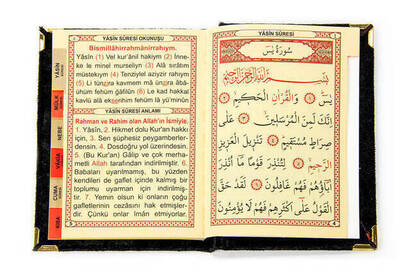 YÂSÎN SÛRESİ OKUNUŞU
Bismillâhirrahmânirrahıym.
Yâsîn (1) Vel kur'ânil hakiym (2) İnne-
ke le minel murseliyn (3) Alâ sırâtım
müstekıym (4) Tenziylel aziyzir rahıym
(5) Li tünzira kavmem mâ ünzira âbâ-
ühüm fehüm ğâfilûn (6) Le kad hakkal
kavlü alâ ekserihim fehüm lâ yü'minûn
YÂSÎN SÛRESİ ANLAMI
Rahman ve Rahim olan Allah'ın ismiyle.
1. Yâsîn, 2. Hikmet dolu Kur'ana hakkı
için, 3. Sen şüphesiz peygamberler-
densin. 4. Dosdoğru yol üzerindesin.
5. (Bu Kur'an) Gâlip ve çok merha-
metli Allah tarafından indirilmiştir. 6.
Babaları uyarılmamış, bu yüzden
kendileri de gaflet içinde kalmış bir
toplumu uyarman için indirilmiş-
tir. 7. Yemin olsun ki onların çoğu
gafletlerinin cezasını hak etmişler-
dir. Çünkü onlar îman etmiyorlar.
YÂSÎN
MÜLK
NEBE
VÂKIA
CUMA
KISA
YÂSÎN SÛRESİ
سُورَةُ يٰسٓ
بِسْمِ اللّٰهِ الرَّحْمٰنِ الرَّحِيمِ
يٰسٓ ۝ وَالْقُرْاٰنِ الْحَكِيمِ ۝
اِنَّكَ لَمِنَ الْمُرْسَلِينَ ۝ عَلٰى
صِرَاطٍ مُسْتَقِيمٍ ۝ تَنْزِيلَ الْعَزِيزِ
الرَّحِيمِ ۝ لِتُنْذِرَ قَوْمًا مَٓا اُنْذِرَ
اٰبَٓاؤُهُمْ فَهُمْ غَافِلُونَ ۝ لَقَدْ حَقَّ
الْقَوْلُ عَلٰٓى اَكْثَرِهِمْ فَهُمْ لَا يُؤْمِنُونَ
4